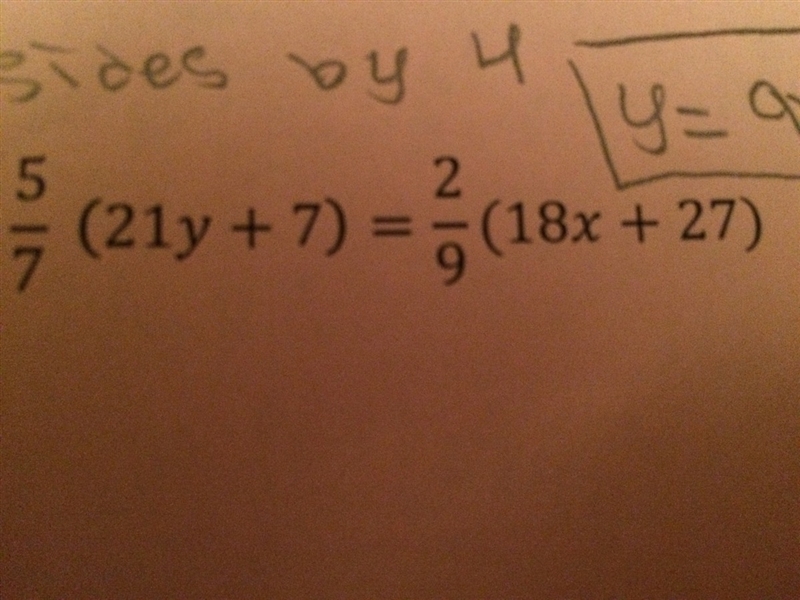 sides by 4
y = 9
5/7 (21y + 7) = 2/9 (18x + 27)